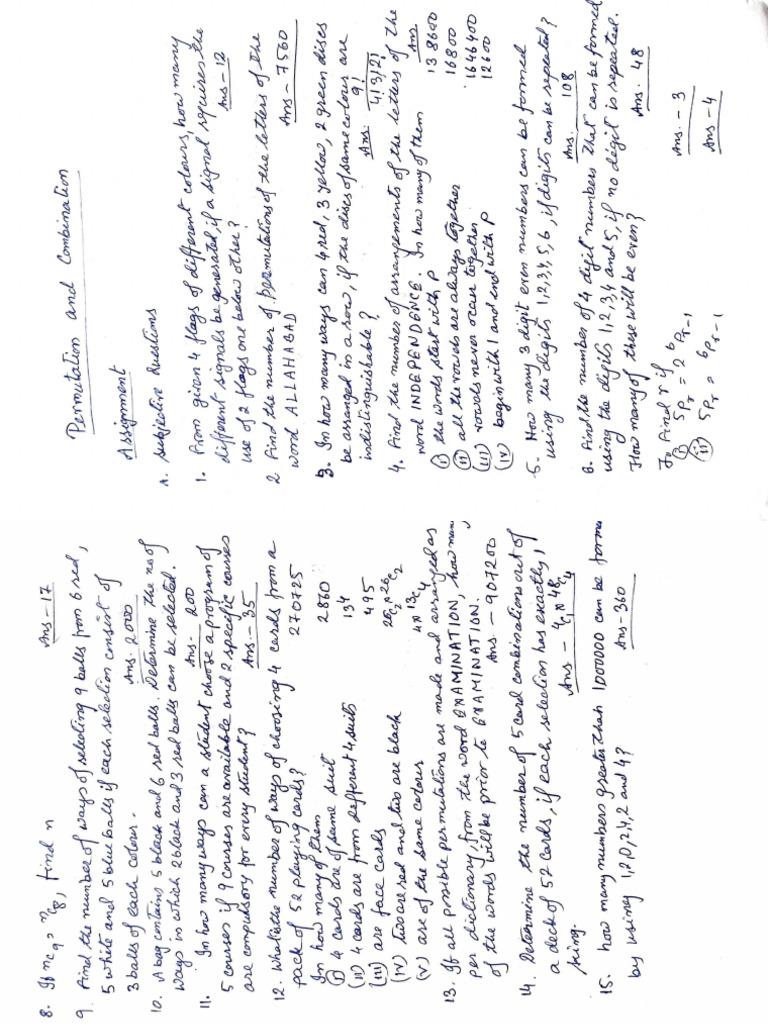 Permutation and Combination
Assignment
A. Subjective Questions
1. From given 4 flags of different colours, how many
different signals be generated, if a signal requires the
use of 2 flags one below other? Ans - 12
2 Find the number of permutations of the letters of the
word ALLAHABAD Ans - 7560
3. In how many ways can 4 red, 3 yellow, 2 green discs
be arranged in a row, if the discs of same colour are
indistinguishable? Ans. 9! / 4!3!2!
4. Find the number of arrangements of the letters of the
word INDEPENDENCE. In how many of them Ans
(i) the words start with P 138600
(ii) all the vowels are always together 16800
(iii) vowels never occur together 1646400
(iv) begin with I and end with P 12600
5. How many 3 digit even numbers can be formed
using the digits 1,2,3,4,5,6, if digits can be repeated?
Ans. 108
6. Find the number of 4 digit numbers that can be formed
using the digits 1,2,3,4 and 5, if no digit is repeated.
How many of these will be even? Ans. 48
7. Find r if
(i) 5Pr = 2 6Pr-1 Ans. - 3
(ii) 5Pr = 6Pr-1 Ans - 4
8. If nC9 = nC8, find n Ans - 17
9. Find the number of ways of selecting 9 balls from 6 red,
5 white and 5 blue balls if each selection consist of
3 balls of each colour. Ans. 2000
10. A bag contains 5 black and 6 red balls. Determine the no of
ways in which 2 black and 3 red balls can be selected.
Ans - 200
11. In how many ways can a student choose a program of
5 courses if 9 courses are available and 2 specific courses
are compulsory for every student? Ans - 35
12. What is the number of ways of choosing 4 cards from a
pack of 52 playing cards? 270725
In how many of them
(i) 4 cards are of same suit 2860
(ii) 4 cards are from different 4 suits 134
(iii) are face cards 495
(iv) two are red and two are black 26C2 x 26C2
(v) are of the same colour 4 x 13C4
13. If all possible permutations are made and arranged as
per dictionary, from the word EXAMINATION, how man
of the words will be prior to EXAMINATION.
Ans - 907200
14. Determine the number of 5 card combinations out of
a deck of 52 cards, if each selection has exactly 1
king. Ans - 4C1 x 48C4
15. how many numbers greater than 1000000 can be forme
by using 1,2,0,2,4,2 and 4? Ans - 360